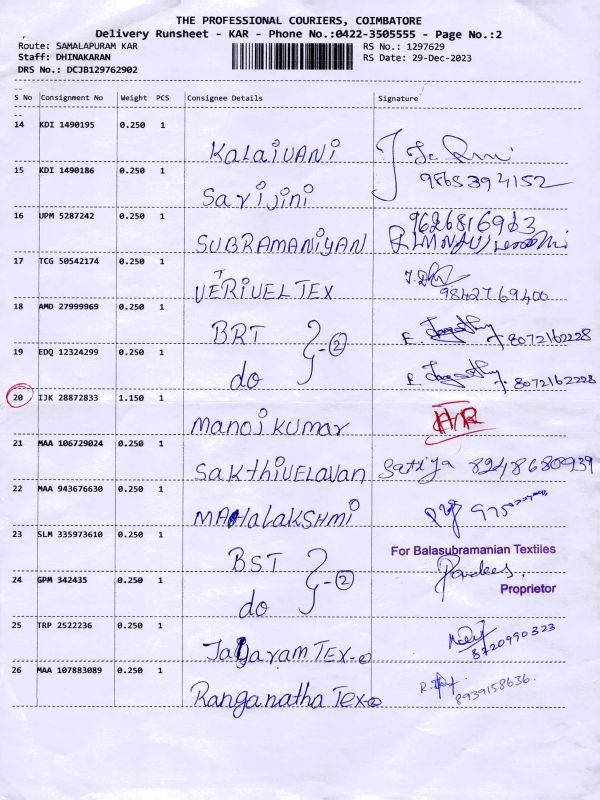 THE PROFESSIONAL COURIERS, COIMBATORE
Delivery Runsheet - KAR - Phone No.:0422-3505555 - Page No.:2
Route: SAMALAPURAM KAR RS No.: 1297629
Staff: DHINAKARAN RS Date: 29-Dec-2023
DRS No.: DCJB129762902
S No Consignment No Weight PCS Consignee Details Signature
14 KDI 1490195 0.250 1
Kalaivani
15 KDI 1490186 0.250 1
9865394152
Sarijini
16 UPM 5287242 0.250 1
9626816963
SUBRAMANIYAN
17 TCG 50542174 0.250 1
VETRIVEL TEX 98427 69400
18 AMD 27999969 0.250 1
BRT - 2 8072162228
19 EDQ 12324299 0.250 1
do 8072162228
20 IJK 28872833 1.150 1
Manoj Kumar H/R
21 MAA 106729024 0.250 1
Sakthivelavan Satija 8248680939
22 MAA 943676630 0.250 1
MAHalakshmi
23 SLM 335973610 0.250 1
BST - 2 For Balasubramanian Textiles
24 GPM 342435 0.250 1
Proprietor
do
25 TRP 2522236 0.250 1
8720990323
Jalyaram TEX
26 MAA 107883089 0.250 1
8939158636.
Ranganatha Tex